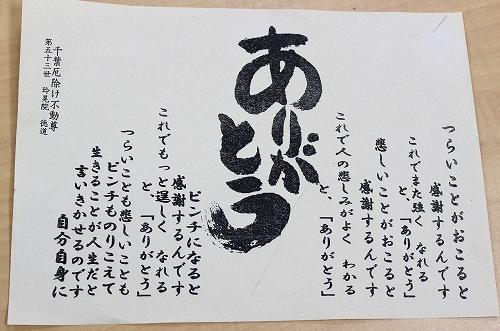 つらいことがおこると
感謝するんです
これでまた強く なれる
と、「ありがとう」
悲しいことがおこると
感謝するんです
これで人の悲しみがよく わかる
と、「ありがとう」
ありがとう
ピンチになると
感謝するんです
これでもっと逞しく なれる
と、「ありがとう」
つらいことも悲しいことも
ピンチものりこえて
生きることが人生だと
言いきかせるのです
自分自身に
千葉厄除け不動尊
第五十三世 玲晃院 徳道